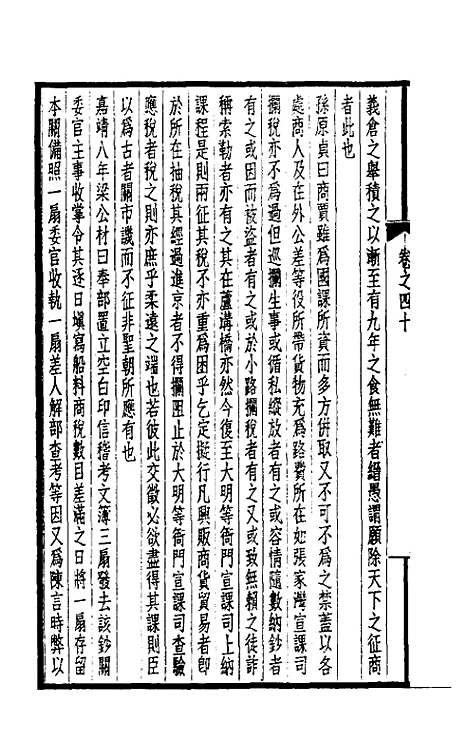 卷之四十
義倉之舉積之以漸至有九年之食無難者緇愚謂願除天下之征商
者此也
孫原貞曰商賈雖爲國課所資而多方併取又不可不爲之禁蓋以各
處商人及在外公差等役所帶貨物充爲路費所在如張家灣宣課司
攔稅亦不爲過但巡攔生事或循私縱放者有之或容情隨數納鈔者
有之或因而被盜者有之或於小路攔稅者有之又或致無賴之徒詐
稱索勒者亦有之其在蘆溝橋亦然今復至大明等衙門宣課司上納
課程是則兩征其稅不亦重爲困乎乞定擬行凡興販商貨貿易者卽
於所在抽稅其經過進京者不得攔阻止於大明等衙門宣課司查驗
應稅者稅之則亦庶乎柔遠之端也若彼此交徵必欲盡得其課則臣
以爲古者關市譏而不征非聖朝所應有也
嘉靖八年梁公材曰奉部置立空白印信稽考文簿三扇發去該鈔關
委官主事收掌令其逐日塡寫船料商稅數目差滿之日將一扇存留
本關備照一扇委官收執一扇差人解部查考等因又爲陳言時弊以